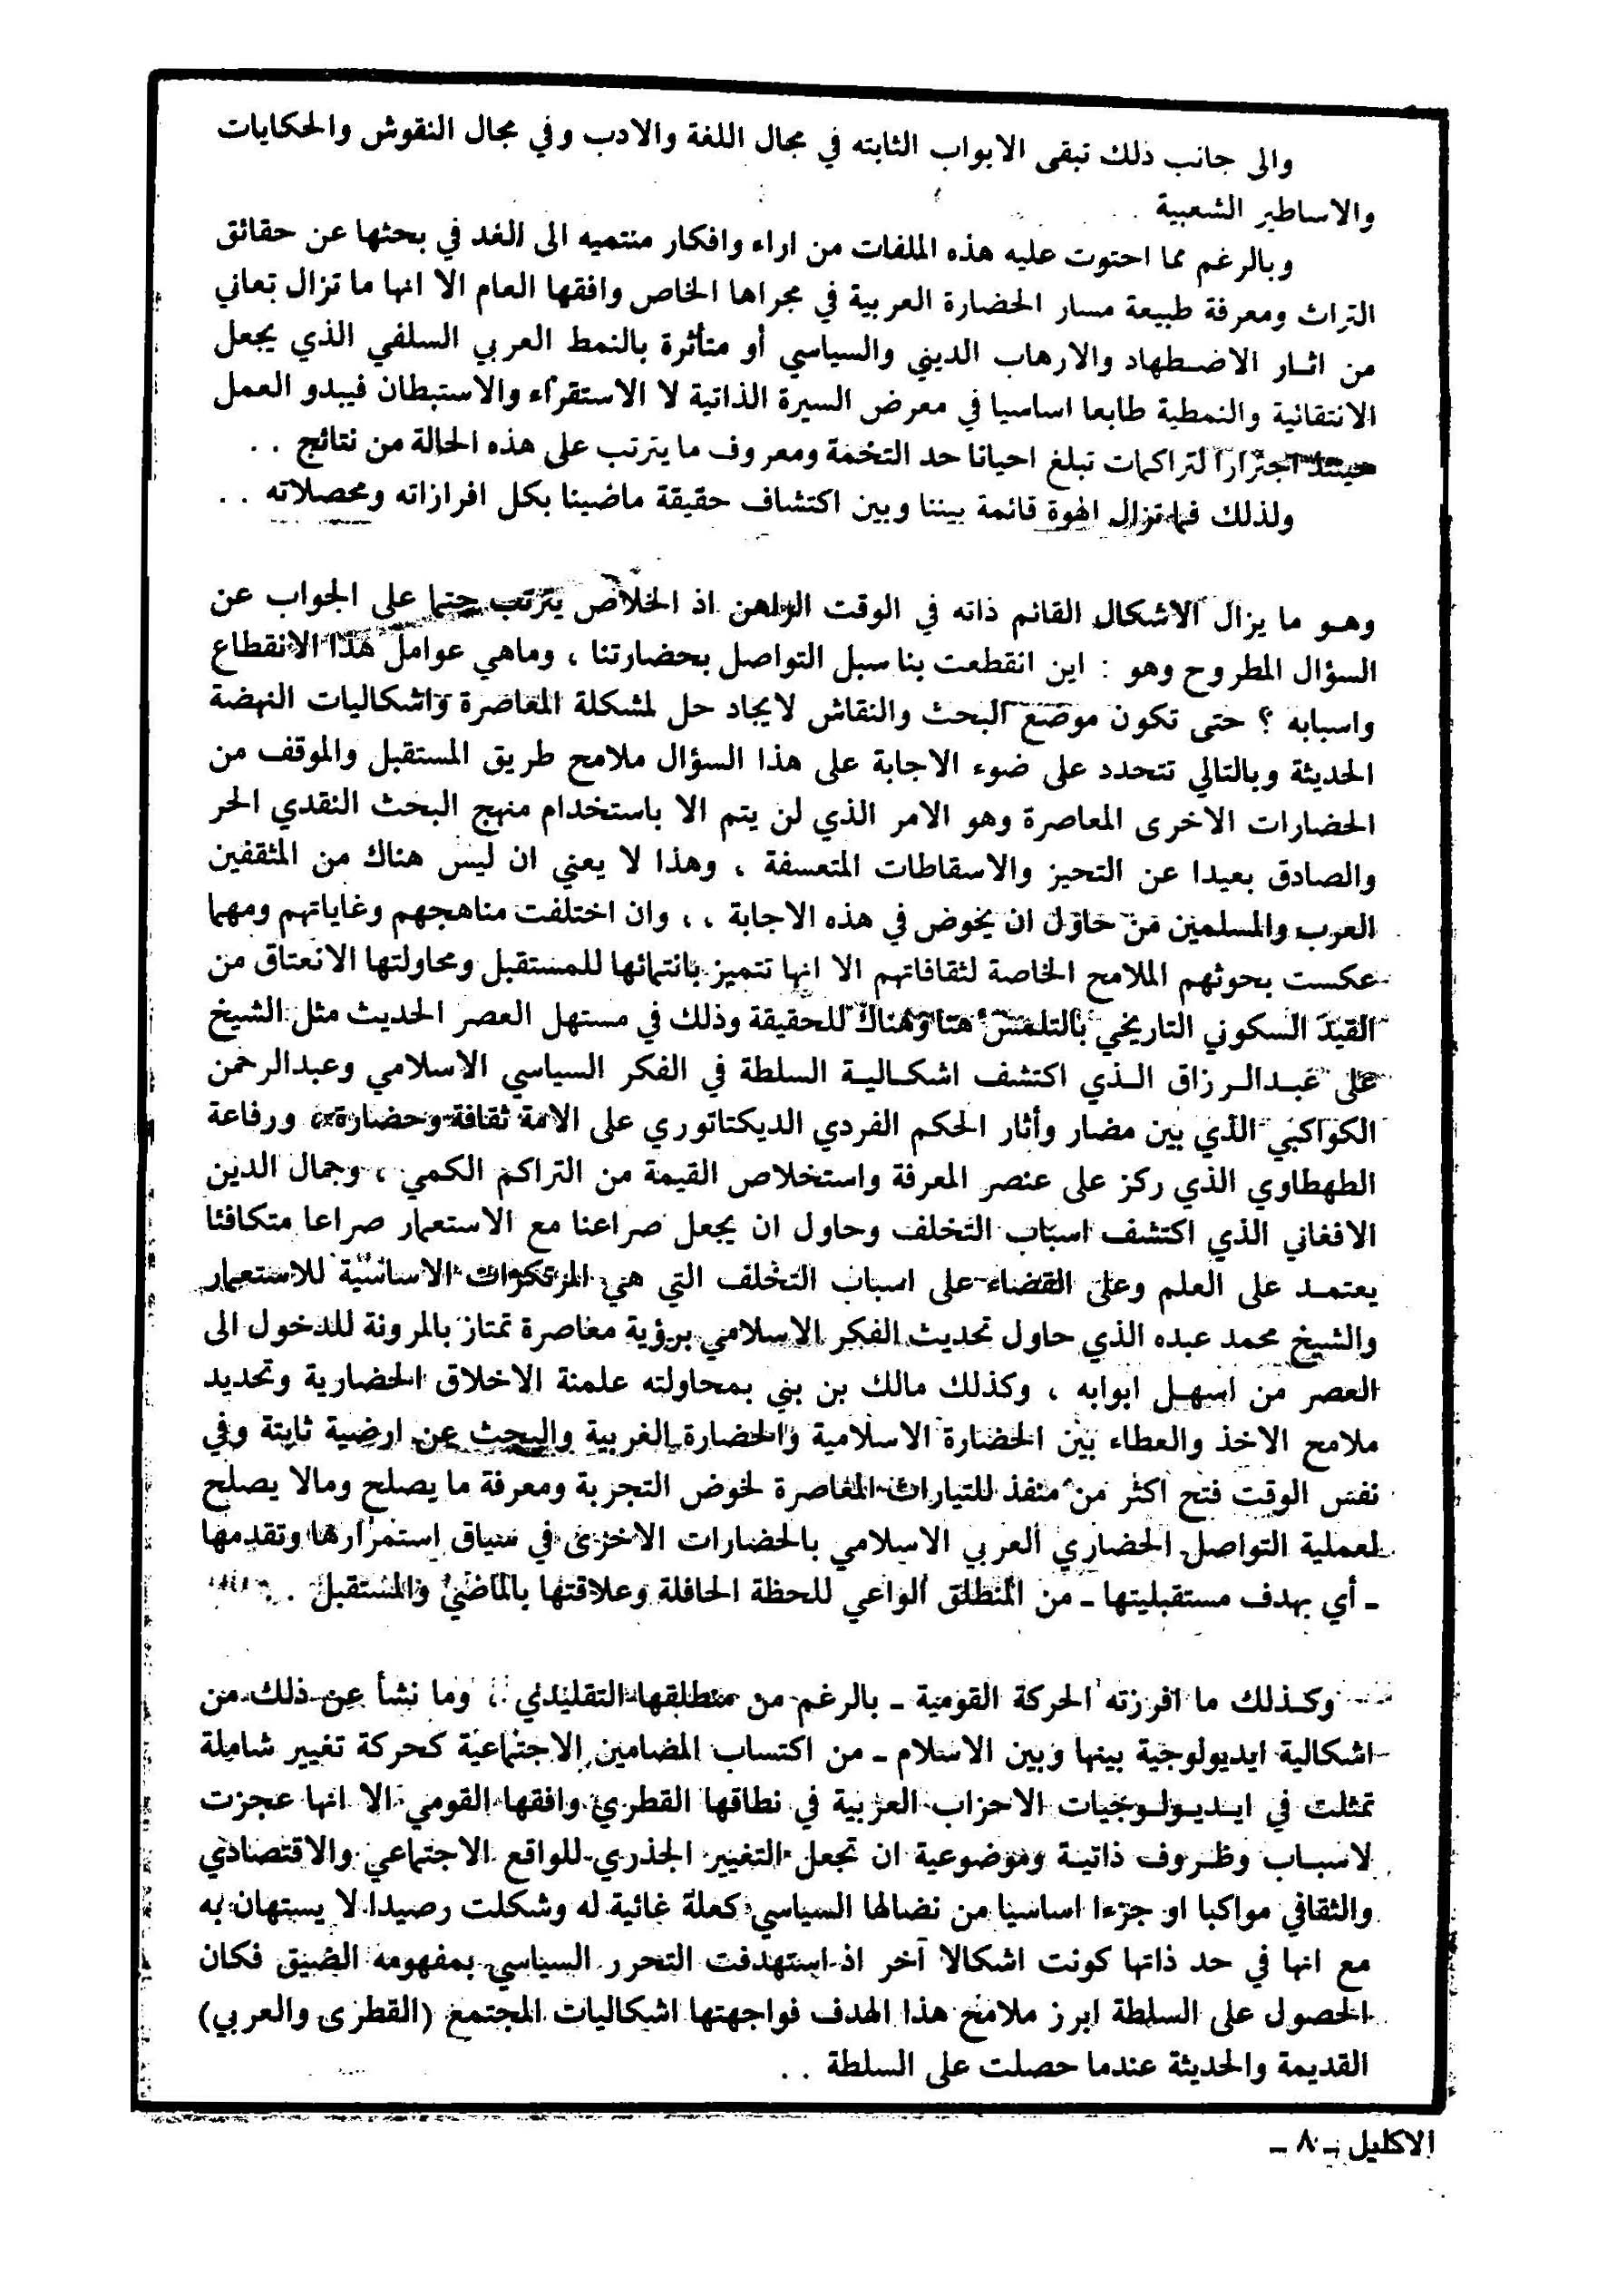 والى جانب ذلك تبقى الابواب الثابته في مجال اللغة والادب وفي مجال النقوش والحكايات
والاساطير الشعبية . .
وبالرغم مما احتوت عليه هذه الملفات من اراء وافكار منتميه الى الغد في بحثها عن حقائق
التراث ومعرفة طبيعة مسار الحضارة العربية في مجراها الخاص وافقها العام الا انها ما تزال تعاني
من اثار الاضطهاد والارهاب الديني والسياسي أو متأثرة بالنمط العربي السلفي الذي يجعل
الانتقائية والنمطية طابعا اساسيا في معرض السيرة الذاتية لا الاستقراء والاستبطان فيبدو العمل
حينئذ اجترارا لتراكمات تبلغ احيانا حد التخمة ومعروف ما يترتب على هذه الحالة من نتائج . .
ولذلك فما تزال الهوة قائمة بيننا وبين اكتشاف حقيقة ماضينا بكل افرازاته ومحصلاته . .
وهو ما يزال الاشكال القائم ذاته في الوقت الراهن اذ الخلاص يترتب حتما على الجواب عن
السؤال المطروح وهو : اين انقطعت بنا سبل التواصل بحضارتنا ، وماهي عوامل هذا الانقطاع
واسبابه ؟ حتى تكون موضع البحث والنقاش لايجاد حل لمشكلة المعاصرة واشكاليات النهضة
الحديثة وبالتالي تتحدد على ضوء الاجابة على هذا السؤال ملامح طريق المستقبل والموقف من
الحضارات الاخرى المعاصرة وهو الامر الذي لن يتم الا باستخدام منهج البحث النقدي الحر
والصادق بعيدا عن التحيز والاسقاطات المتعسفة ، وهذا لا يعني ان ليس هناك من المثقفين
العرب والمسلمين من حاول ان يخوض في هذه الاجابة ، ، وان اختلفت مناهجهم وغاياتهم ومهما
عكست بحوثهم الملامح الخاصة لثقافاتهم الا انها تتميز بانتمائها للمستقبل ومحاولتها الانعتاق من
القيد السكوني التاريخي بالتلمس هنا وهناك للحقيقة وذلك في مستهل العصر الحديث مثل الشيخ
على عبدالرزاق الذي اكتشف اشكالية السلطة في الفكر السياسي الاسلامي وعبدالرحمن
الكواكبي الذي بين مضار وأثار الحكم الفردي الديكتاتوري على الامة ثقافة وحضارة ، ورفاعة
الطهطاوي الذي ركز على عنصر المعرفة واستخلاص القيمة من التراكم الكمي ، وجمال الدين
الافغاني الذي اكتشف اسباب التخلف وحاول ان يجعل صراعنا مع الاستعمار صراعا متكافئا
يعتمد على العلم وعلى القضاء على اسباب التخلف التي هي المرتكزات الاساسية للاستعمار
والشيخ محمد عبده الذي حاول تحديث الفكر الاسلامي برؤية معاصرة تمتاز بالمرونة للدخول الى
العصر من اسهل ابوابه ، وكذلك مالك بن بني بمحاولته علمنة الاخلاق الحضارية وتحديد
ملامح الاخذ والعطاء بين الحضارة الاسلامية والحضارة الغربية والبحث عن ارضية ثابتة وفي
نفس الوقت فتح اكثر من منفذ للتيارات المعاصرة لخوض التجربة ومعرفة ما يصلح ومالا يصلح
لعملية التواصل الحضاري العربي الاسلامي بالحضارات الاخرى في سياق استمرارها وتقدمها
ـ أي بهدف مستقبليتها ـ من المنطلق الواعي للحظة الحافلة وعلاقتها بالماضي والمستقبل . .
وكذلك ما افرزته الحركة القومية ـ بالرغم من منطلقها التقليدي ، وما نشأ عن ذلك من
اشكالية ايديولوجية بينها وبين الاسلام ـ من اكتساب المضامين الاجتماعية كحركة تغيير شاملة
تمثلت في ايديولوجيات الاحزاب العربية في نطاقها القطري وافقها القومي الا انها عجزت
لاسباب وظروف ذاتية وموضوعية ان تجعل التغيير الجذري للواقع الاجتماعي والاقتصادي
والثقافي مواكبا او جزءا اساسيا من نضالها السياسي كعلة غائية له وشكلت رصيدا لا يستهان به
مع انها في حد ذاتها كونت اشكالا آخر اذ استهدفت التحرر السياسي بمفهومه الضيق فكان
الحصول على السلطة ابرز ملامح هذا الهدف فواجهتها اشكاليات المجتمع (القطرى والعربي)
القديمة والحديثة عندما حصلت على السلطة . .
الاكليل ـ ٨٠ ـ